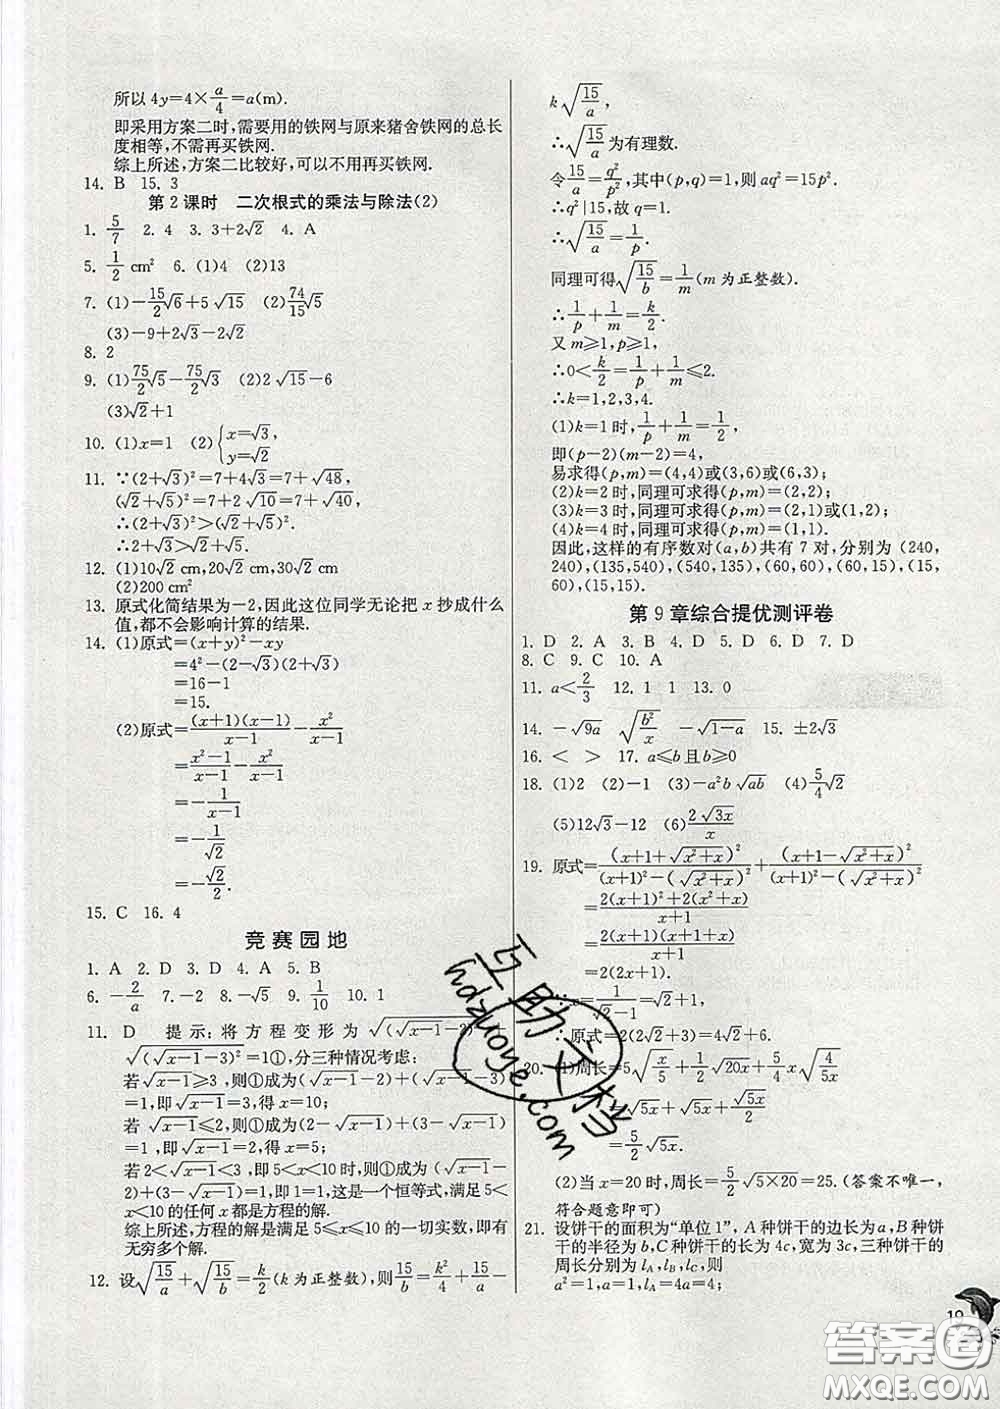 所以 4y=4×a/4=a(m).
即采用方案二时,需要用的铁网与原来猪舍铁网的总长
度相等,不需再买铁网.
综上所述,方案二比较好,可以不用再买铁网.
14. B 15. 3
第 2 课时 二次根式的乘法与除法(2)
1. 5/7 2. 4 3. 3+2√2 4. A
5. 1/2 cm² 6. (1)4 (2)13
7. (1)-15/2√6+5√15 (2)74/15√5
(3)-9+2√3-2√2
8. 2
9. (1)75/2√5-75/2√3 (2)2√15-6
(3)√2+1
10. (1)x=1 (2){x=√3,
y=√2
11. ∵(2+√3)²=7+4√3=7+√48,
(√2+√5)²=7+2√10=7+√40,
∴(2+√3)²>(√2+√5)².
∴2+√3>√2+√5.
12. (1)10√2 cm,20√2 cm,30√2 cm
(2)200 cm²
13. 原式化简结果为-2,因此这位同学无论把 x 抄成什么
值,都不会影响计算的结果.
14. (1)原式=(x+y)²-xy
=4²-(2-√3)(2+√3)
=16-1
=15.
(2)原式=(x+1)(x-1)/(x-1)-x²/(x-1)
=(x²-1)/(x-1)-x²/(x-1)
=-1/(x-1)
=-1/√2
=-√2/2.
15. C 16. 4
竞赛园地
1. A 2. D 3. D 4. A 5. B
6. -2/a 7. -2 8. -√5 9. 1/10 10. 1
11. D 提示:将方程变形为 √(√(x-1)-2)
√(√(x-1)-3)²=1①,分三种情况考虑:
若√(x-1)≥3,则①成为(√(x-1)-2)+(√(x-1)-3)
=1,即√(x-1)=3,得 x=10;
若 √(x-1)≤2,则①成为(2-√(x-1))+(3-√(x-1))
=1,即√(x-1)=2,得 x=5;
若 2<√(x-1)<3,即 5<x<10 时,则①成为(√(x-1)-
2)+(3-√(x-1))=1,即 1=1,这是一个恒等式,满足 5<
x<10 的任何 x 都是方程的解.
综上所述,方程的解是满足 5≤x≤10 的一切实数,即有
无穷多个解.
12. 设√(15/a)+√(15/b)=k/2(k 为正整数),则15/b=k²/4+15/a-
k√(15/a),
∴√(15/a)为有理数.
令15/a=q²/p²,其中(p,q)=1,则 aq²=15p².
∴q²|15,故 q=1.
∴√(15/a)=1/p.
同理可得√(15/b)=1/m(m 为正整数).
∴1/p+1/m=k/2.
又 m≥1,p≥1,
∴0<k/2=1/p+1/m≤2.
∴k=1,2,3,4.
(1)k=1 时,1/p+1/m=1/2,
即(p-2)(m-2)=4,
易求得(p,m)=(4,4)或(3,6)或(6,3);
(2)k=2 时,同理可求得(p,m)=(2,2);
(3)k=3 时,同理可求得(p,m)=(2,1)或(1,2);
(4)k=4 时,同理可求得(p,m)=(1,1).
因此,这样的有序数对(a,b)共有 7 对,分别为(240,
240),(135,540),(540,135),(60,60),(60,15),(15,
60),(15,15).
第 9 章综合提优测评卷
1. D 2. A 3. B 4. D 5. D 6. D 7. D
8. C 9. C 10. A
11. a<2/3 12. 1 1 13. 0
14. -√(9a) √(b²/x) -√(1-a) 15. ±2√3
16. < > 17. a≤b 且 b≥0
18. (1)2 (2)-1 (3)-a²b√(ab) (4)5/4√2
(5)12√3-12 (6)2√(3x)/x
19. 原式=(x+1+√(x²+x))²/((x+1)²-(√(x²+x))²)+(x+1-√(x²+x))²/((x+1)²-(√(x²+x))²)
=(2(x+1)²+2(x²+x))/(x+1)
=2(x+1)(2x+1)/(x+1)
=2(2x+1).
=1/(√2-1)=√2+1,
∴原式=2(2√2+3)=4√2+6.
20. (1)周长=5√(x/5)+1/2√(20x)+5/4x√(4/(5x))
=√(5x)+√(5x)+√(5x)/2
=5/2√(5x).
(2)当 x=20 时,周长=5/2√(5×20)=25.(答案不唯一,
符合题意即可)
21. 设饼干的面积为“单位 1”,A 种饼干的边长为 a,B 种饼
干的半径为 b,C 种饼干的长为 4c,宽为 3c,三种饼干的
周长分别为 l_A,l_B,l_C,则
a²=1,a=1,l_A=4a=4;
互助文档
hdzuoye.com
答案圈
MXQE.COM